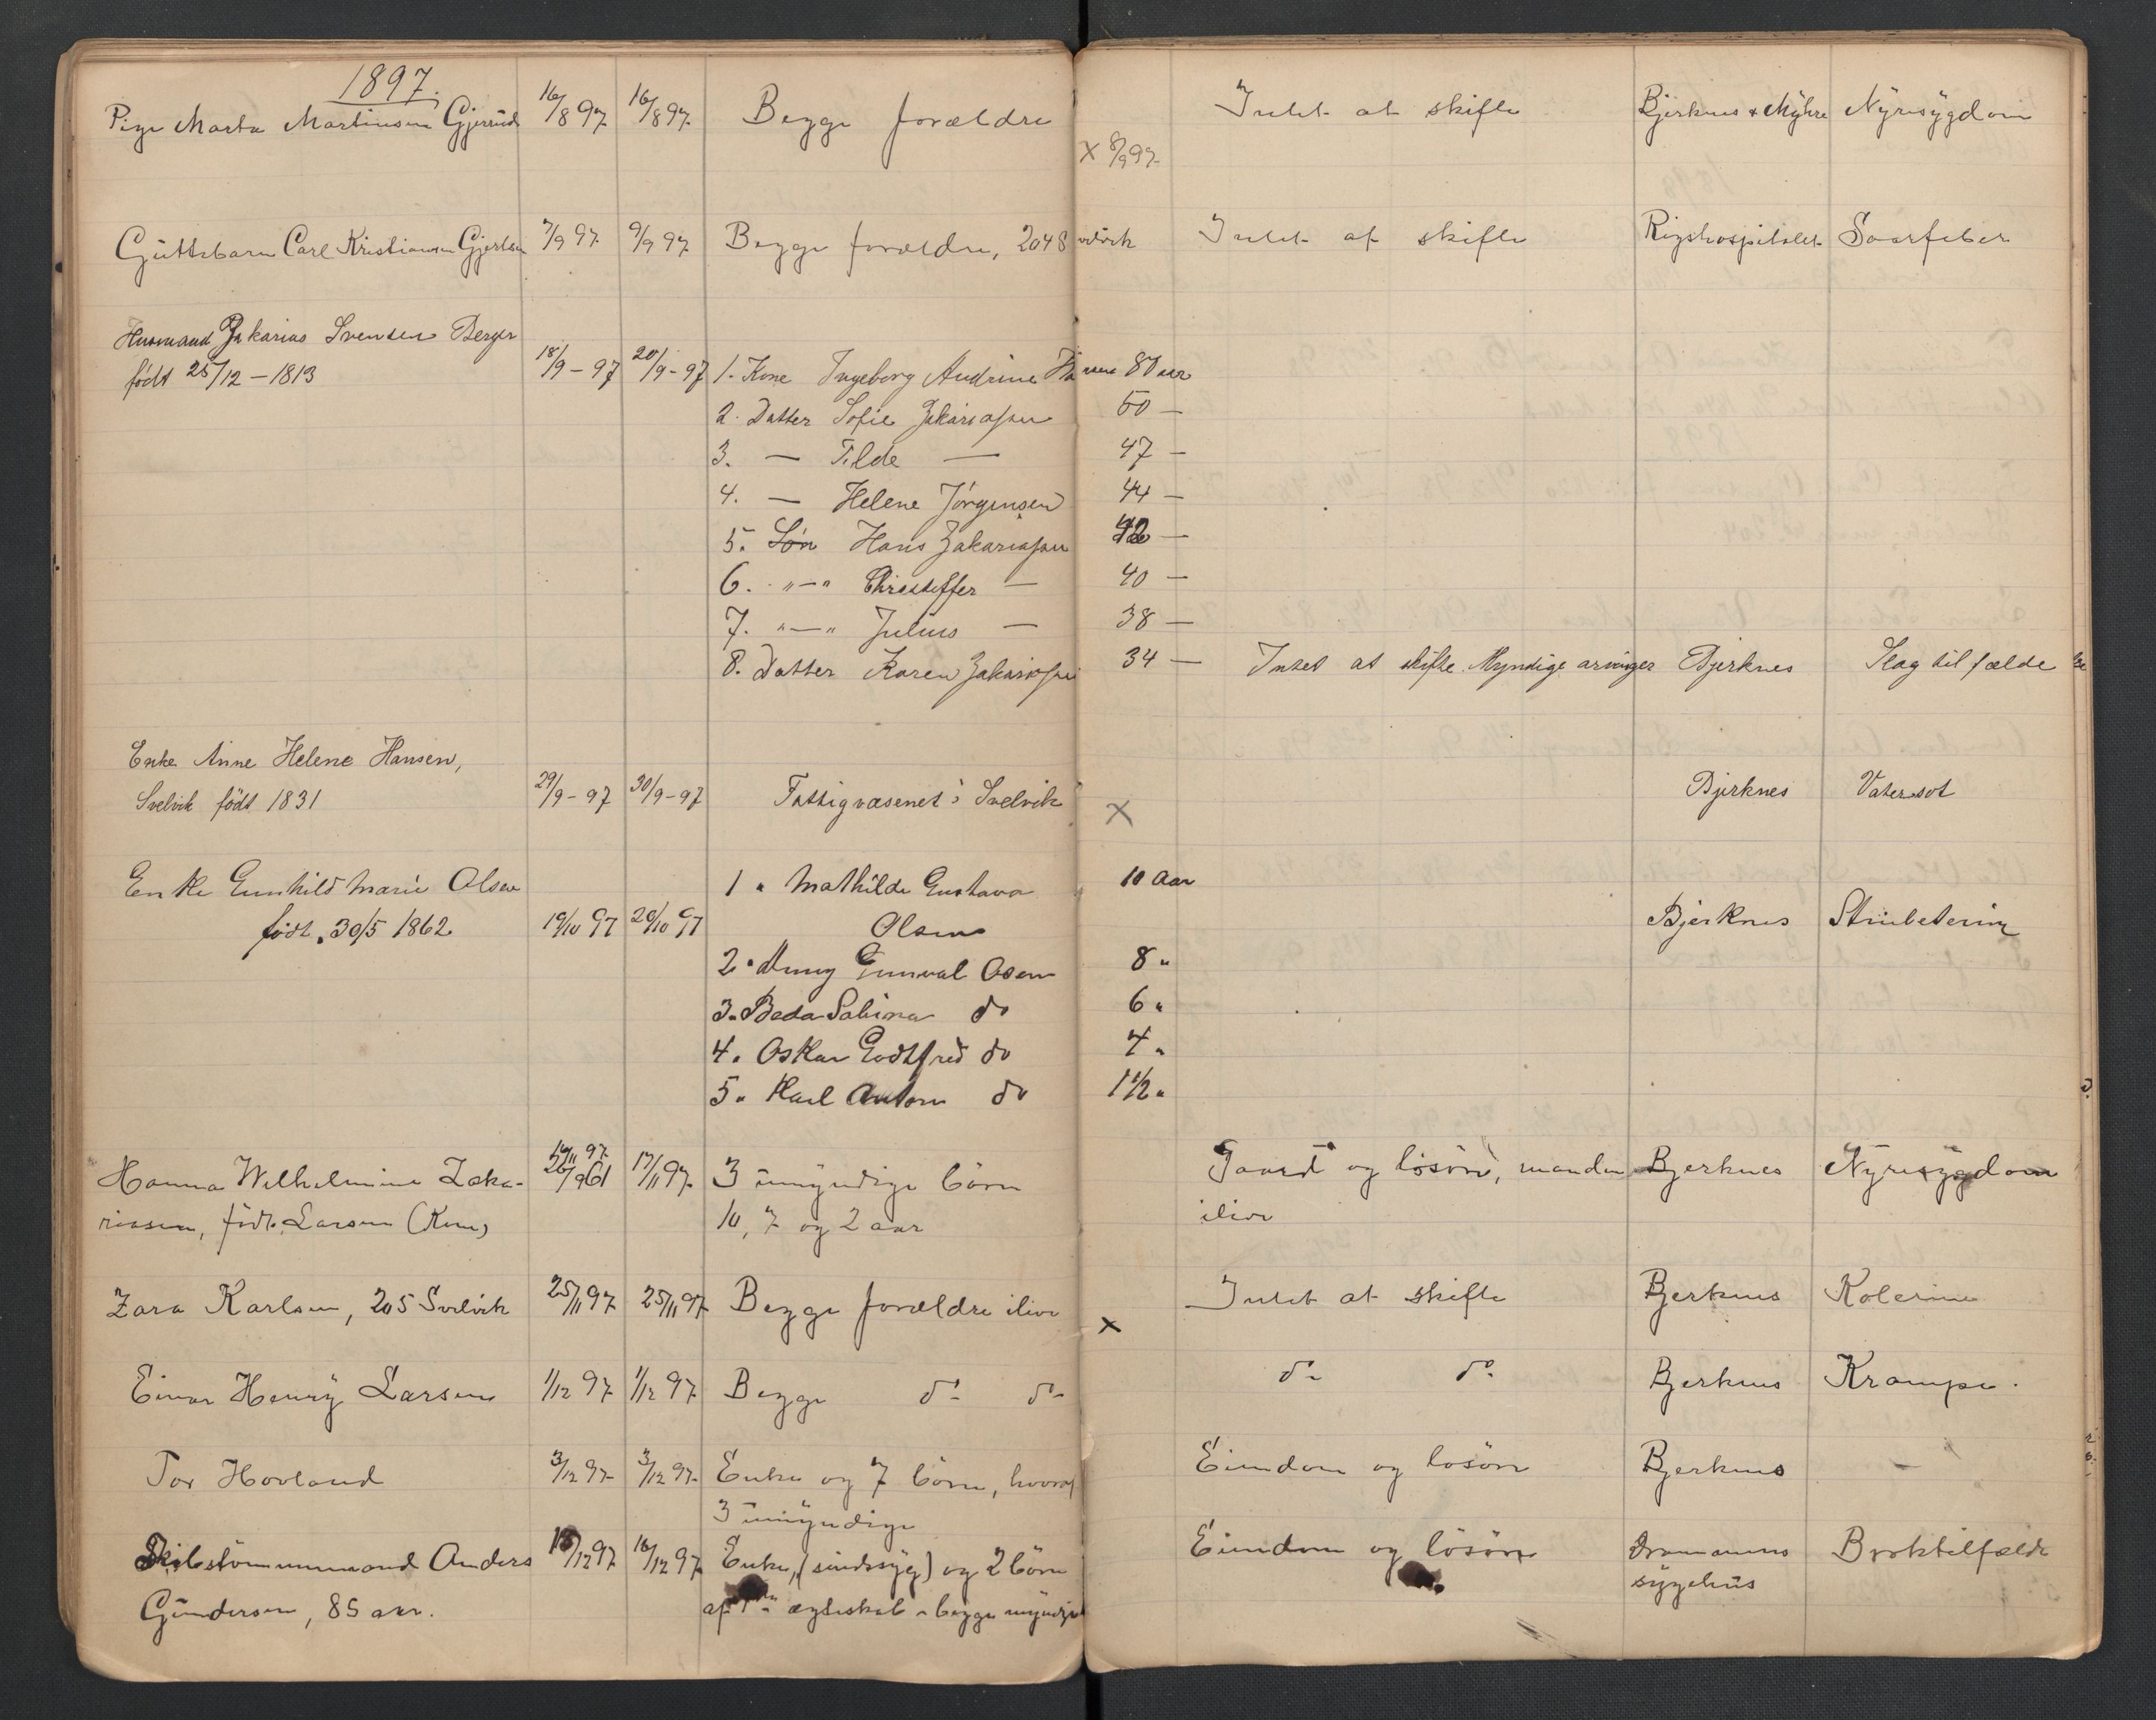 1897.
Pige Marta Martinsen Gjerrud 16/8 97 16/8 97. Begge forældre Intet at skifte Bjerknes & Myhre Nyresygdom
X 8/9 97.
Guttebarn Carl Kristiansen Gjertsen 7/9 97. 9/9 97 Begge forældre, 204 Svelvik Intet at skifte Rigshospitalet Saarfeber
Husmand Zakarias Svensen Berger
født 25/12 – 1813 18/9 – 97 20/9 – 97 1. Kone Ingeborg Andrine 87 aar
2. Datter Sofie Zakariassen 50 —
3. — Tilde — 47 —
4. — Helene Jörgensen 44 —
5. Sön Hans Zakariassen 42 —
6. „—„ Christoffer — 40 —
7. „—„ Julius — 38 —
8. Datter Karen Zakariassen 34 — Intet at skifte. Myndige arvinger Bjerknes Slagtilfælde
Enke Anne Helene Hansen,
Svelvik födt 1831 29/9 – 97 30/9 – 97 Fattigvæsenet i Svelvik X Bjerknes Vatersot
Enke Gunhild Marie Olsen 1 „ Mathilde Gustava 10 Aar
födt. 30/5 1862 19/10 97 20/10 97 Olsen Bjerknes Strubetering
2 „ Gunval Osen 8 „
3 „ Beda Sabina do 6 „
4 „ Oskar Godtfred do 4 „
5 „ Karl Anton do 1 1/2 „
Hanna Wilhelmine Zaka- 26/9 61 17/11 97. 3 umyndige börn Gaard og lösöre, manden Bjerknes Nyresygdom
riassen, födt Larsen (Kone) 10, 7 og 2 aar ilive
Zara Karlsen, 205 Svelvik 25/11 97 25/11 97. Begge forældre ilive X Intet at skifte Bjerknes Kolerine
Einar Henry Larsen 1/12 97 1/12 97. Begge do do do do Bjerknes Krampe.
Tov Hovland 3/12 97. 3/12 97. Enke og 7 börn, hvoraf Eiendom og lösöre Bjerknes –
3 umyndige
Skibstömmermand Anders 15/12 97 16/12 97. Enke, (sindssyg) og 2 börn Eiendom og lösöre Drammens Broktilfælde
Gundersen, 85 aar. af 1ste ægteskab – begge myndige sygehus